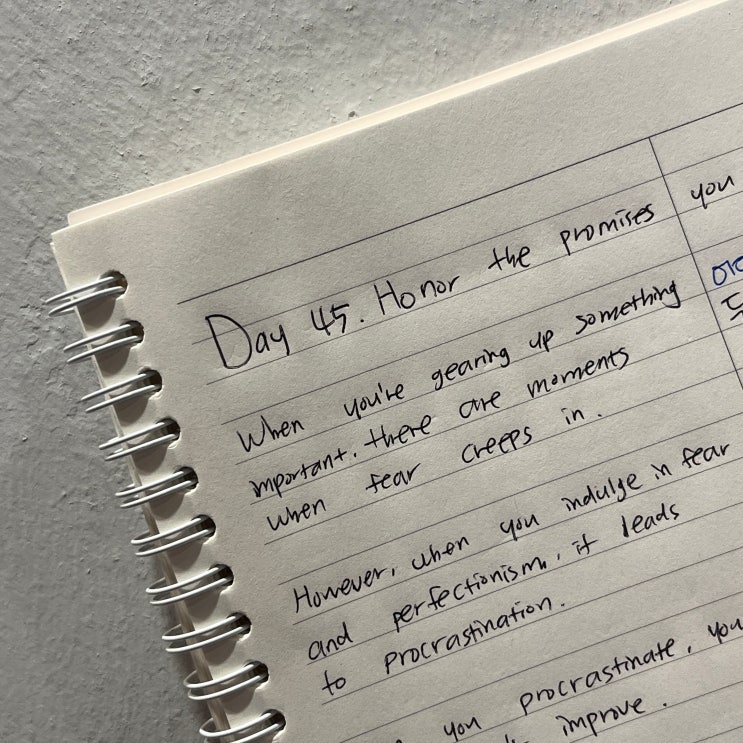 Day 45. Honor the promises you
When you're gearing up something
important. there are moments
when fear creeps in.
However, when you indulge in fear
and perfectionism, it leads
to procrastination.
you procrastinate, you
improve.